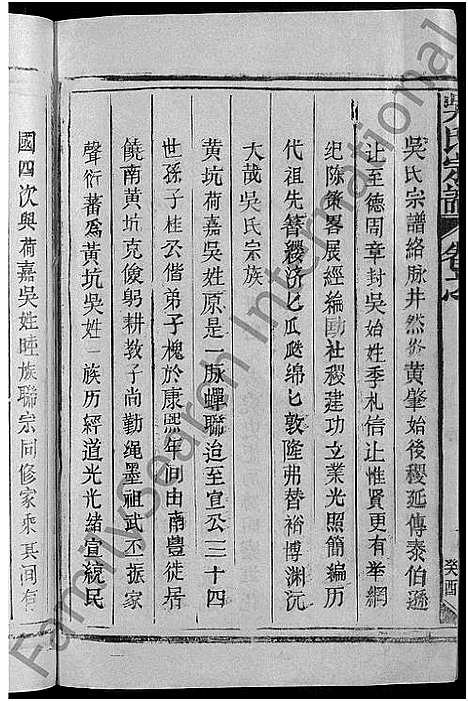 吳氏宗譜 卷之
癸酉
吳氏宗譜絡脉井然炎黄肇始后稷延傳泰伯遜
让至德周章封吳始姓季札信让惟贤更有举綱
纪除條畧展經綸勋社稷建功立業光照簡編历
代祖先簪缨济匕瓜瓞绵匕敦隆弗替裕博渊沅
大哉吳氏宗族
黄坑荷嘉吳姓原是一脉蟬聯迨至宣公三十四
世孙子桂公偕弟子槐於康熙年间由南豊徙居
饒南黄坑克儉躬耕教子尚勤绳墨祖武丕振家
聲衍蕃為黄坑吳姓一族历經道光光緒宣統民
國四次與荷嘉吳姓睦族聯宗同修家乘其间有
FamilySearch International